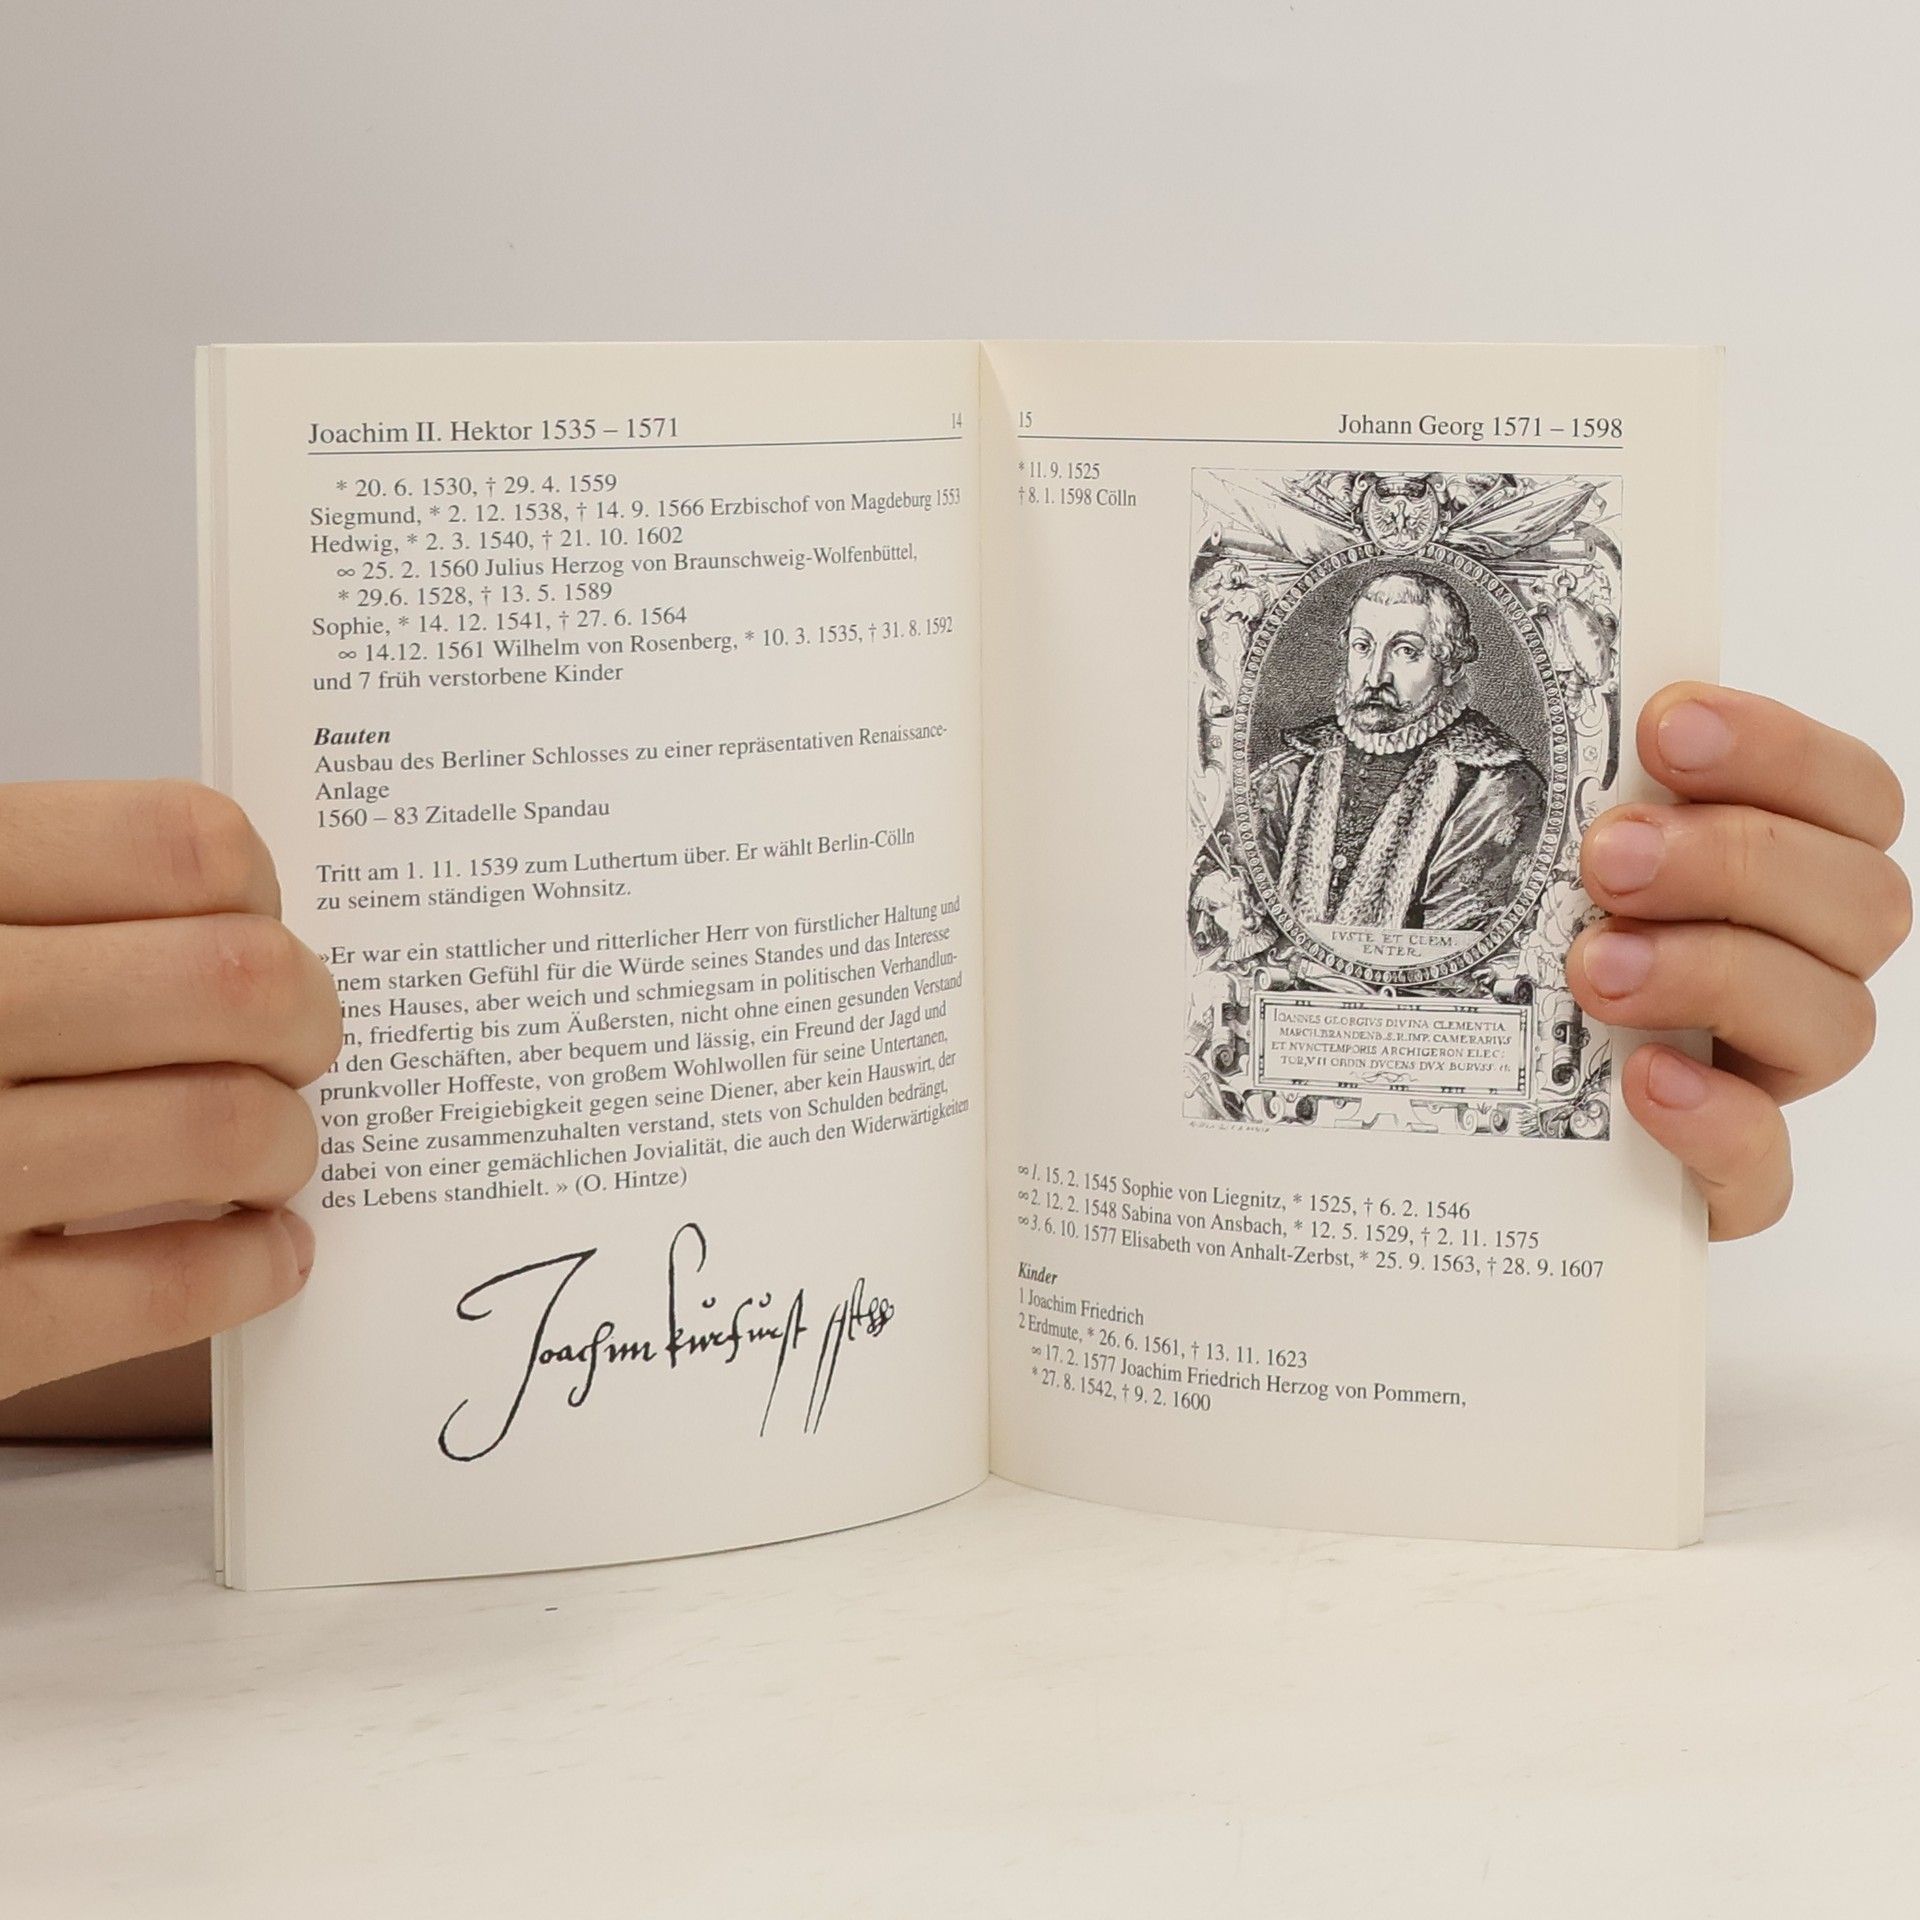 Joachim II. Hektor 1535 – 1571
14
* 20. 6. 1530, † 29. 4. 1559
Siegmund, * 2. 12. 1538, † 14. 9. 1566 Erzbischof von Magdeburg 1553
Hedwig, * 2. 3. 1540, † 21. 10. 1602
∞ 25. 2. 1560 Julius Herzog von Braunschweig-Wolfenbüttel,
* 29.6. 1528, † 13. 5. 1589
Sophie, * 14. 12. 1541, † 27. 6. 1564
∞ 14.12. 1561 Wilhelm von Rosenberg, * 10. 3. 1535, † 31. 8. 1592
und 7 früh verstorbene Kinder
Bauten
Ausbau des Berliner Schlosses zu einer repräsentativen Renaissance-
Anlage
1560 – 83 Zitadelle Spandau
Tritt am 1. 11. 1539 zum Luthertum über. Er wählt Berlin-Cölln
zu seinem ständigen Wohnsitz.
»Er war ein stattlicher und ritterlicher Herr von fürstlicher Haltung und
nem starken Gefühl für die Würde seines Standes und das Interesse
ines Hauses, aber weich und schmiegsam in politischen Verhandlun-
n, friedfertig bis zum Äußersten, nicht ohne einen gesunden Verstand
den Geschäften, aber bequem und lässig, ein Freund der Jagd und
prunkvoller Hoffeste, von großem Wohlwollen für seine Untertanen,
von großer Freigiebigkeit gegen seine Diener, aber kein Hauswirt, der
das Seine zusammenzuhalten verstand, stets von Schulden bedrängt,
dabei von einer gemächlichen Jovialität, die auch den Widerwärtigkeiten
des Lebens standhielt. » (O. Hintze)
Joachim kurfürst
15
Johann Georg 1571 – 1598
* 11. 9. 1525
† 8. 1. 1598 Cölln
IVSTE ET CLEM-
ENTER.
IOANNES GEORGIVS DIVINA CLEMENTIA
MARCH.BRANDENB.S.R.IMP. CAMERARIVS
ET NVNCTEMPORIS ARCHIGERON ELEC:
TOR,VII ORDIN DVCENS DVX BORVSS.
∞ 1. 15. 2. 1545 Sophie von Liegnitz, * 1525, † 6. 2. 1546
∞ 2. 12. 2. 1548 Sabina von Ansbach, * 12. 5. 1529, † 2. 11. 1575
∞ 3. 6. 10. 1577 Elisabeth von Anhalt-Zerbst, * 25. 9. 1563, † 28. 9. 1607
Kinder
1 Joachim Friedrich
2 Erdmute, * 26. 6. 1561, † 13. 11. 1623
∞ 17. 2. 1577 Joachim Friedrich Herzog von Pommern,
* 27. 8. 1542, † 9. 2. 1600